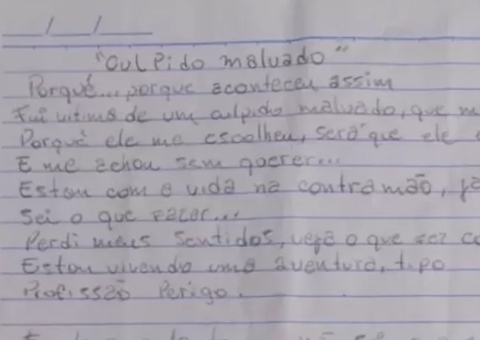 "Culpido malvado"
Porquê... porque aconteceu assim
Fui vitima de um culpido malvado, que m
Porquê ele me escolheu, será que ele
E me achou sem querer...
Estou com a vida na contramão, já
Sei o que fazer...
Perdi meus Sentidos, veja o que fez c
Estou vivendo uma aventura, tipo
Profissão Perigo.